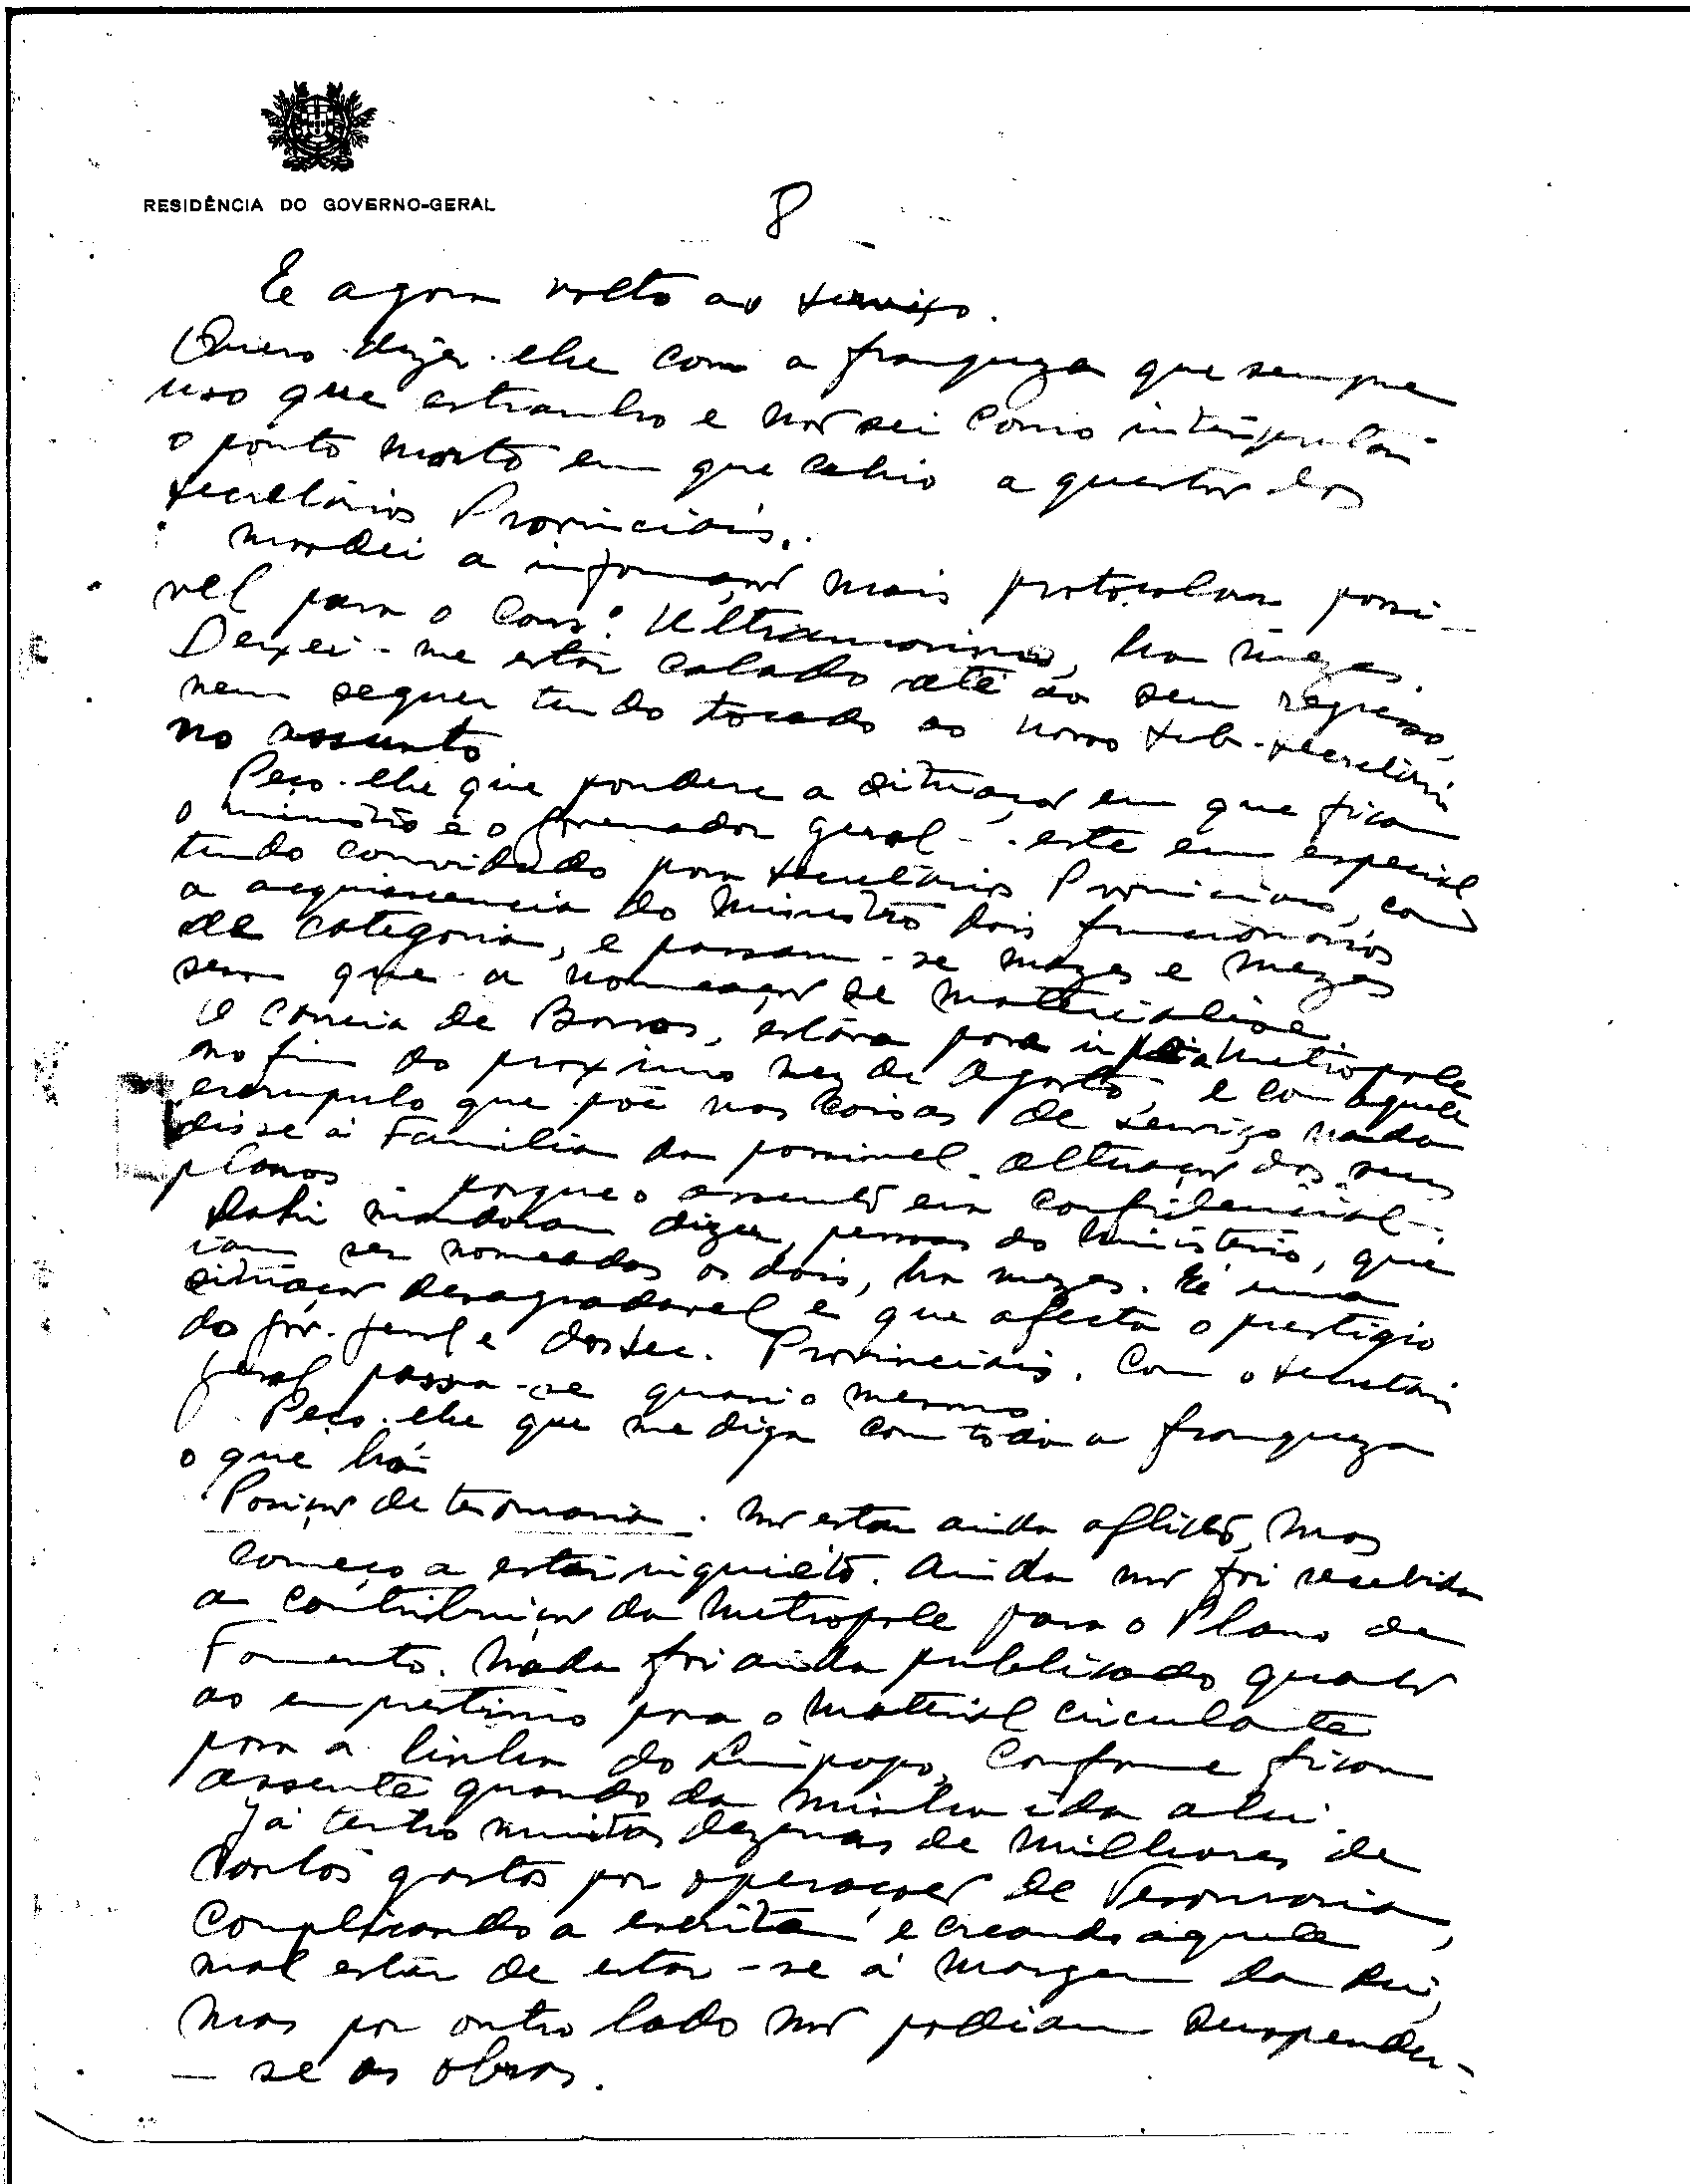 RESIDÊNCIA DO GOVERNO-GERAL
8
E agora volto ao serviço.
Quero dizer-lhe com a franqueza que sempre
uso que estranho e não sei como interpretar
o ponto morto em que cahio a questão dos
secretários Provinciais.
Mandei a informação mais protocolar possi-
vel para o Cons.º Ultramarino, ha mezes.
Deixei-me estar calado até ao seu regresso,
nem sequer tendo tocado ao novo sub-secretário
no assunto
Peço-lhe que pondere a situação em que ficam
o ministro e o governador geral - este em especial
tendo convidado para secretários Provinciais, com
a acquiescencia do Ministro dois funcionários
de categoria, e passam-se mezes e mezes
sem que a nomeação se materialise
O Correia de Barros, estava para ir para a Metropole
no fim do proximo mez de Agosto, e com aquele
escrupulo que põe nas coisas de serviço nada
disse à Familia da possivel alteração dos seus
planos porque o assunto era confidencial.
Dahi mandaram dizer, pessoas do Ministério, que
iam ser nomeados os dois, ha mezes. É uma
situação desagradavel e que afecta o prestigio
do gov. geral e dos sec. Provinciais. Com o secretário
geral passa-se quasi o mesmo
Peço-lhe que me diga com toda a franqueza
o que há
Posição de tesouraria. Não estou ainda aflicto, mas
começo a estar inquieto. Ainda não foi recebida
a contribuição da Metropole para o Plano de
Fomento. Nada foi ainda publicado quanto
ao emprestimo para o material circulante
para a linha do Limpopo, conforme ficou
assente quando da minha ida ahi.
Já tenho muitas dezenas de milhares de
contos gastos por operações de Tesouraria,
complicando a escrita e creando aquele
mal estar de estar-se à margem da Lei,
mas por outro lado não podiam suspender-
-se as obras.